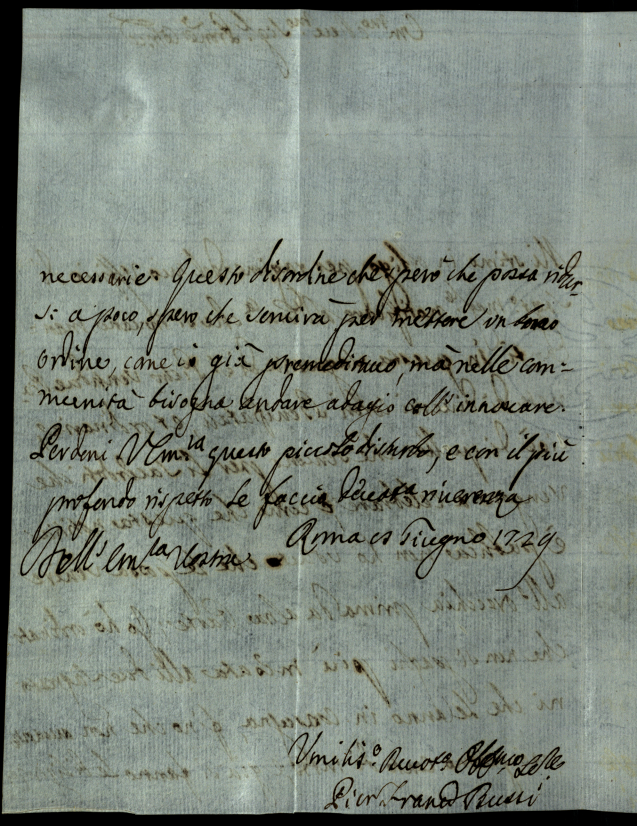 necessarie. Questo disordine che spero che possa ridur-
si a poco, spero che servirà per mettere un buon
ordine, come io già premeditavo, mà nelle com-
munità bisogna andare adagio coll' innovare.
Perdoni V. Em.za questo piccolo disturbo, e con il più
profondo rispetto le faccio devota riverenza
Dell' Em.za Vostra
Roma Giugno 1729
Umilis.o Devot.o
Pier Franc.o Bussi